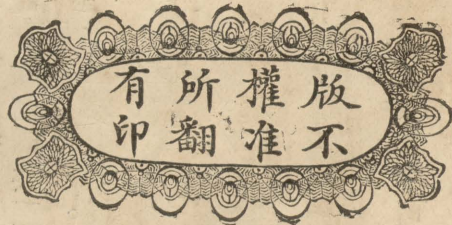 版權所有
不准翻印